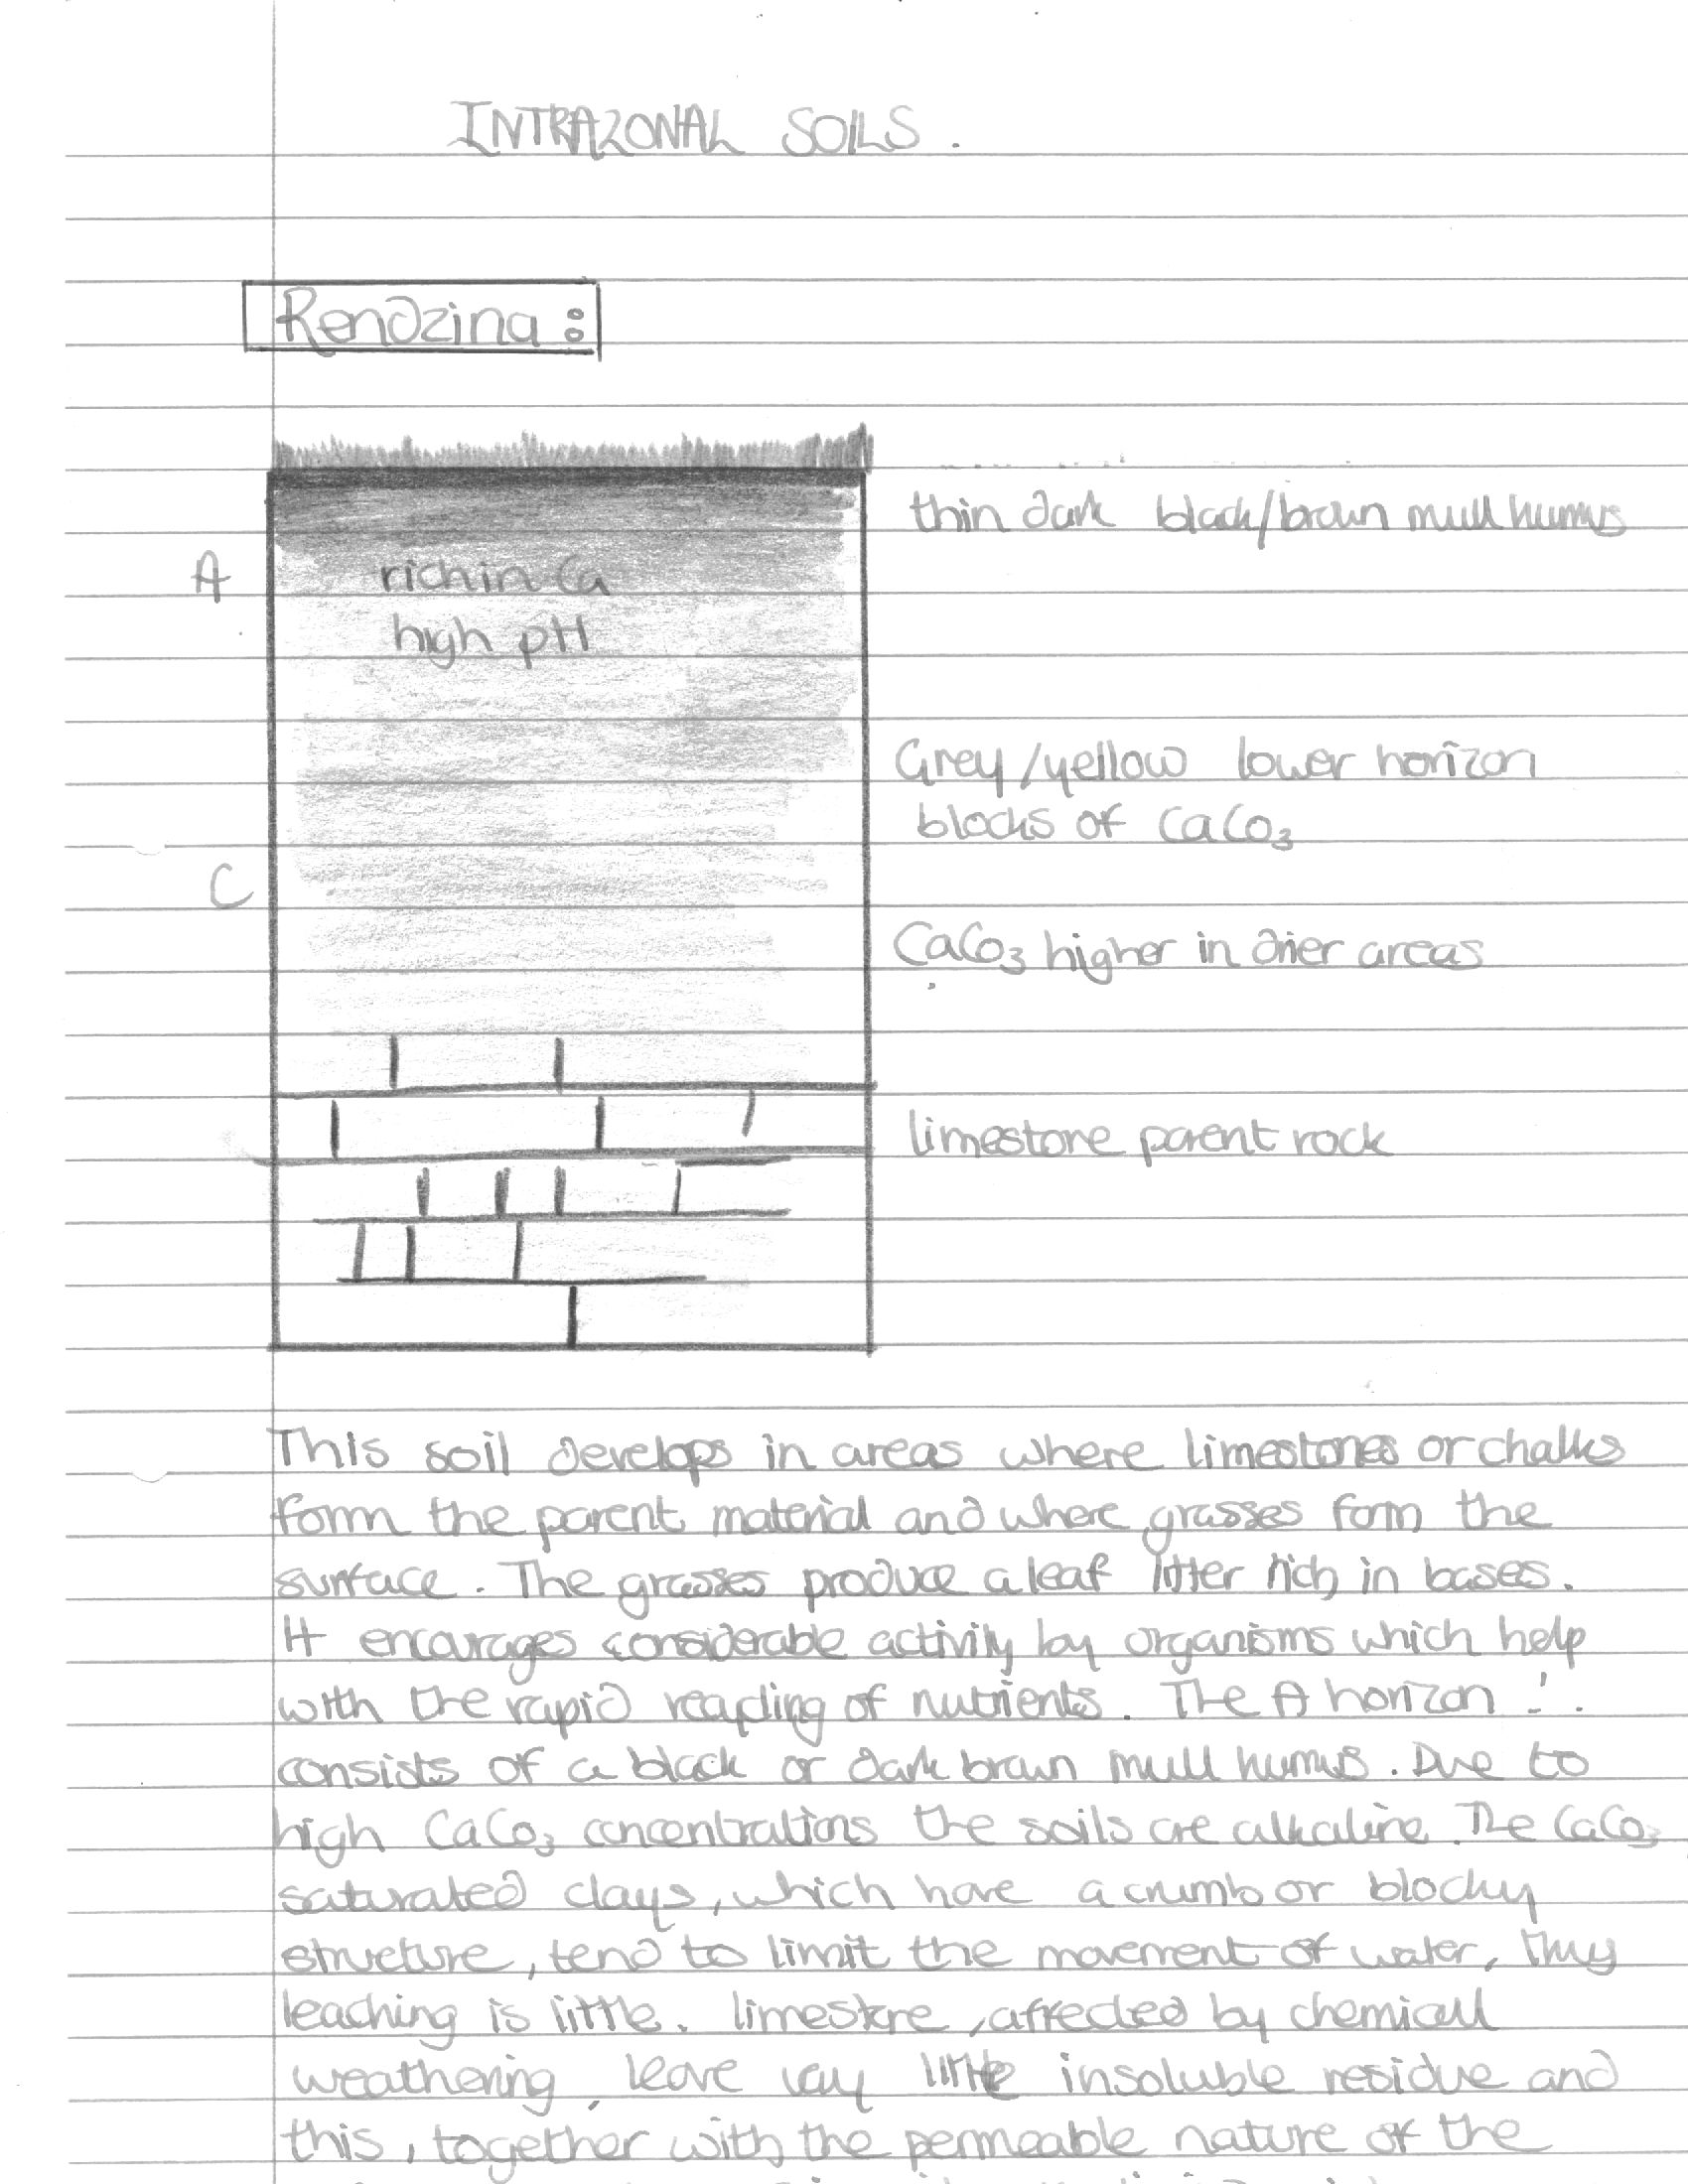 INTRAZONAL SOILS.
Rendzina:
thin dark black/brown mull humus
A
rich in Ca
high pH
Grey/yellow lower horizon
blocks of CaCo₃
C
CaCo₃ higher in drier areas
limestone parent rock
This soil develops in areas where limestones or chalks
form the parent material and where grasses form the
surface. The grasses produce a leaf litter rich in bases.
It encourages considerable activity by organisms which help
with the rapid recycling of nutrients. The A horizon
consists of a black or dark brown mull humus. Due to
high CaCo₃ concentrations the soils are alkaline. The CaCo₃
saturated clays, which have a crumb or blocky
structure, tend to limit the movement of water, thus
leaching is little. limestone, affected by chemicall
weathering, leave very little insoluble residue and
this, together with the permeable nature of the